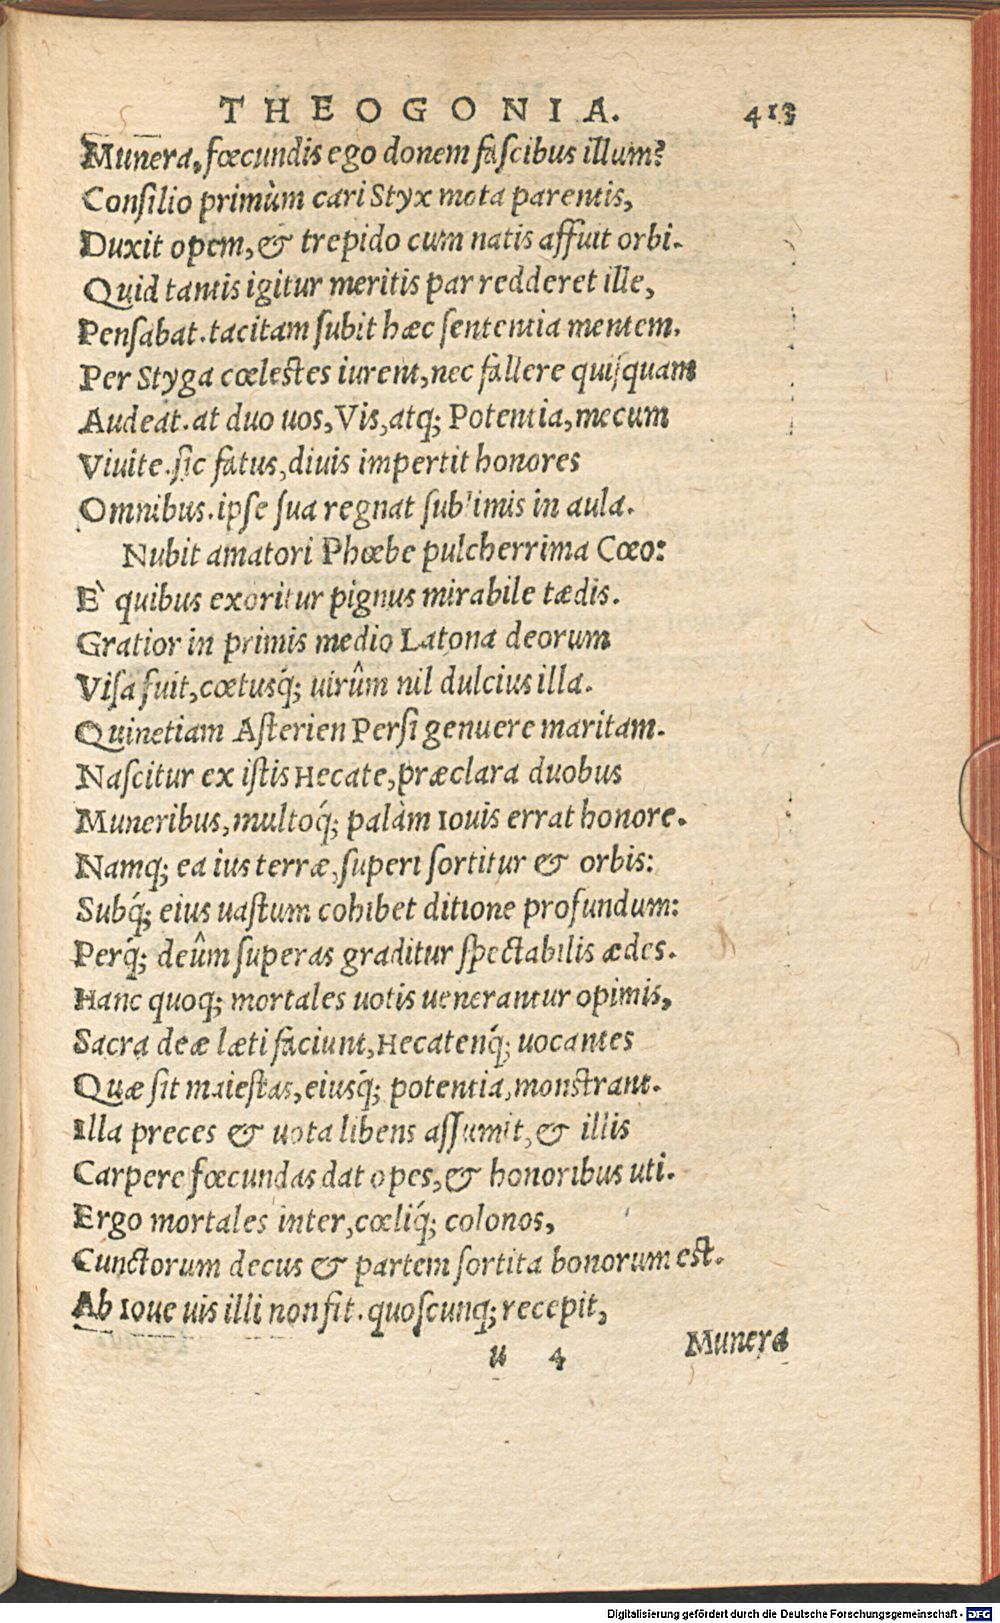 THEOGONIA. 413
Munera, fœcundis ego donem fascibus illum?
Consilio primùm cari Styx mota parentis,
Duxit opem, & trepido cum natis affuit orbi.
Quid tantis igitur meritis par redderet ille,
Pensabat. tacitam subit hæc sententia mentem.
Per Styga cœlestes iurent, nec fallere quisquam
Audeat. at duo uos, Vis, atq; Potentia, mecum
Viuite. sic fatus, diuis impertit honores
Omnibus. ipse sua regnat sublimis in aula.
Nubit amatori Phœbe pulcherrima Cœo:
E` quibus exoritur pignus mirabile tædis.
Gratior in primis medio Latona deorum
Visa fuit, cœtusq́; uirûm nil dulcius illa.
Quinetiam Asterien Persi genuere maritam.
Nascitur ex istis Hecate, præclara duobus
Muneribus, multoq́; palàm Iouis errat honore.
Namq; ea ius terræ, superi sortitur & orbis:
Subq́; eius uastum cohibet ditione profundum:
Perq́; deûm superas graditur spectabilis ædes.
Hanc quoq; mortales uotis uenerantur opimis,
Sacra deæ læti faciunt, Hecatenq́; uocantes
Quæ sit maiestas, eiusq́; potentia, monstrant.
Illa preces & uota libens assumit, & illis
Carpere fœcundas dat opes, & honoribus uti.
Ergo mortales inter, cœliq́; colonos,
Cunctorum decus & partem sortita bonorum est.
Ab Ioue uis illi non fit. quoscunq; recepit,
u 4 Munera
Digitalisierung gefördert durch die Deutsche Forschungsgemeinschaft - DFG